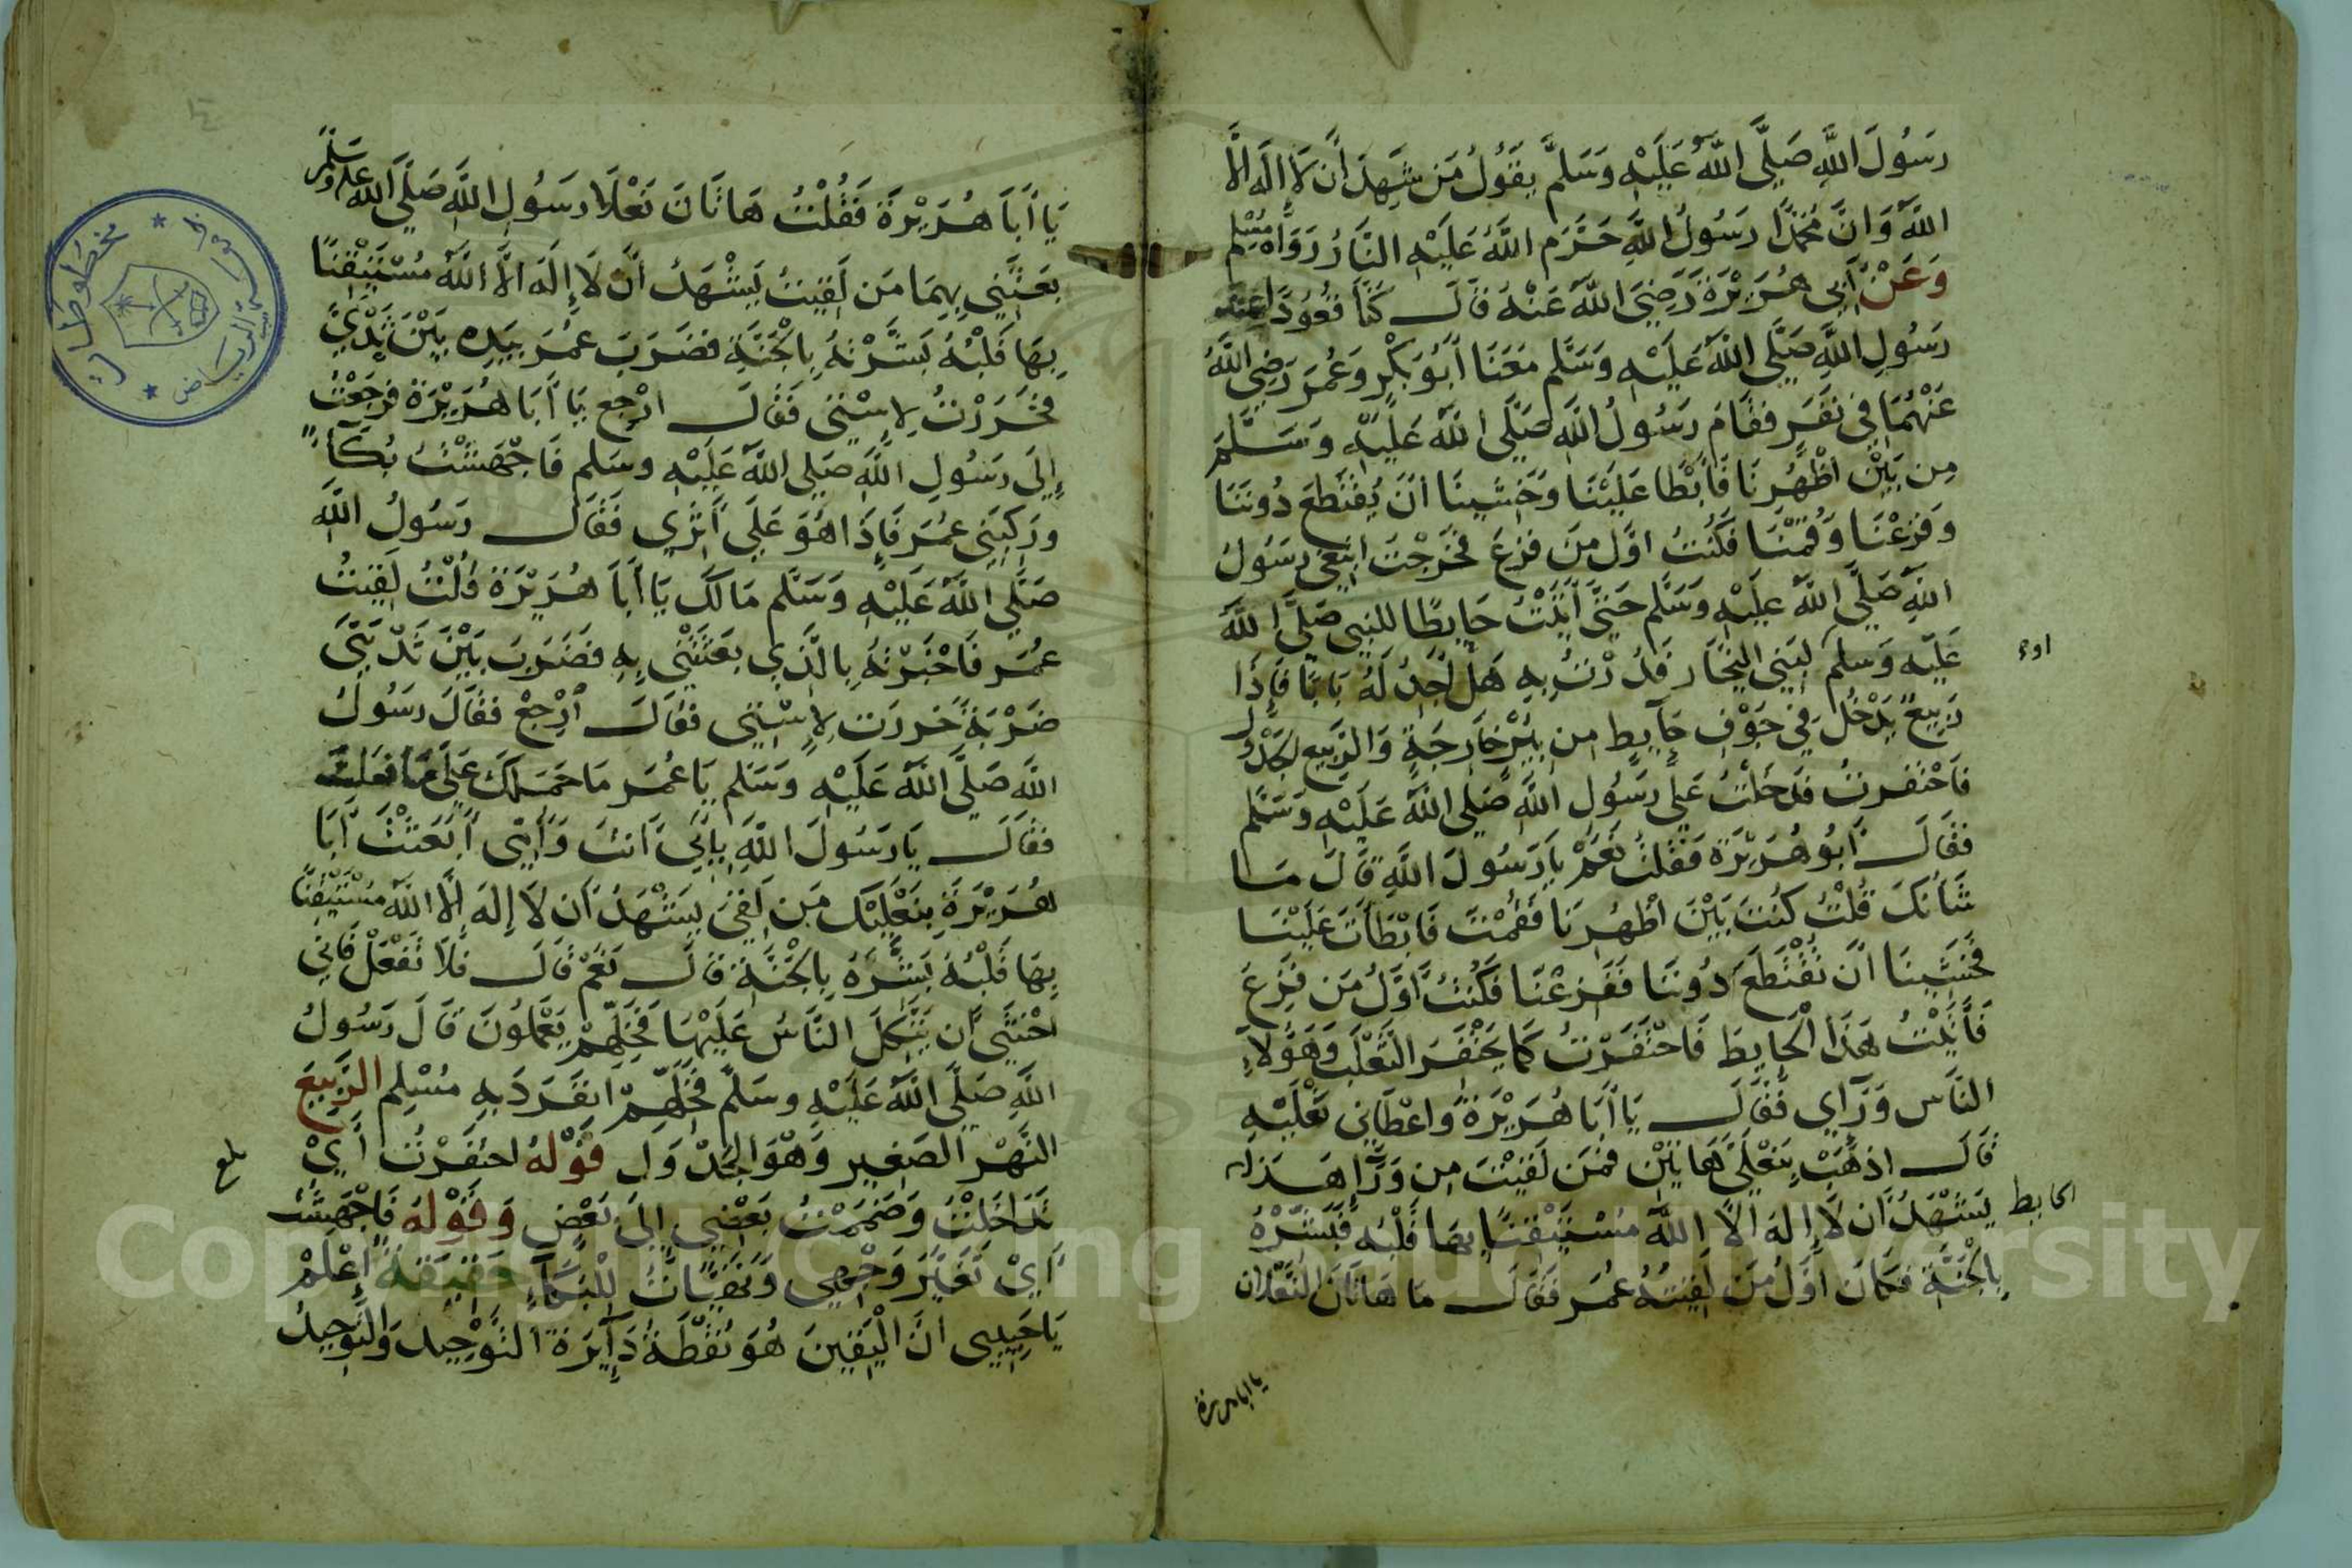 رَسُولَ اللَّهِ صَلَّى اللَّهُ عَلَيْهِ وَسَلَّمَ يَقُولُ مَن شَهِدَ أَن لَا إِلَهَ إلَّا
اللَّهُ وَانَّ مُحَمَّدًا رَسُولُ اللَّهِ حَرَّمَ اللَّهُ عَلَيْهِ النَّارُ رَوَاهُ مُسْلِم
وَعَنْ أَبِي هُرَيْرَةَ رَضِيَ اللَّهُ عَنْهُ قَالَ كُنَّا قُعُودًا عِنْدَ
رَسُولِ اللَّهِ صَلَّى اللَّهُ عَلَيْهِ وَسَلَّم مَعَنَا أَبُو بَكْرٍ وَعُمَرَ رَضِيَ اللَّهُ
عَنْهُمَا فِي نَفَرٍ فَقَامَ رَسُولُ اللَّهِ صَلَّى اللَّهُ عَلَيْهِ وَسَلَّمَ
مِن بَيْنِ اظْهُرِنَا فَابْطَا عَلَيْنَا وَخَشِينَا أَنْ يُقْتَطَعَ دُونَنَا
وَفَزِعْنَا وَقُمْنَا فَكُنْتُ اوَّلَ مَن فَزِعَ فَخَرَجْتُ ابْتَغِي رَسُولَ
اللَّهِ صَلَّى اللَّهُ عَلَيْهِ وَسَلَّم حَتَّى أَتَيْتُ حَايِطًا للنبي صَلَّى اللَّهُ
عَلَيْهِ وَسلم لبَنِي النَّجَّار فَدُرْتُ بِهِ هَلْ أَجِدُ لَهُ بَابًا فَإِذَا
رَبِيعٌ يَدْخُلُ فِي جَوْفِ حَآيِطٍ مِن بِيْرٍ خَارِجَةٍ وَالرَّبِيع الجَدْوَل
فَاحْتَفَرتُ فَدَخَلْتُ عَلَى رَسُولِ اللَّهِ صَلَّى اللَّهُ عَلَيْهِ وَسَلَّم
فَقَالَ أَبُو هُرَيْرَةَ فَقُلْتُ نَعَمْ يَا رَسُولَ اللَّهِ قَالَ مَا
شَأنُكَ قُلْتُ كُنْتَ بَيْنَ اظْهُرِنَا فَقُمْتَ فَابْطَأتَ عَلَيْنَا
فَخَشِينَا أَن تُقْتَطَعَ دُونَنَا فَفَزِعْنَا فَكُنْتُ أَوَّلُ مَن فَزِعَ
فَأَتَيْتُ هَذَا الْحَايِطَ فَاحْتَفَرْتُ كَمَا يَحْتَفِرَ الثَّعْلَبُ وَهَؤُلَاءِ
النَّاس وَرَآي فَقَالَ يَا أَبَا هُرَيْرَةَ وَاعْطَانِي نَعْلَيْهِ
قَالَ اذهَبْ بِنَعْلَيَّ هَاتَيْن فمَن لَقِيْتَ مِن وَرَآ هَذا
الحايط يَشْهَدُ أَن لَا إِلهَ الَّا اللَّهُ مُسْتَيْقِنًا بِهَا قَلْبُهُ فَبَشِّرْهُ
بِالْجَنَّةِ فَكَانَ اوَّلُ مَن لَقِيتُهُ عُمَر فَقَالَ مَا هَاتَانَ النَّعْلَان
يا ابا هريرة
يَا أَبَا هُرَيْرَةَ فَقُلْتُ هَاتَانَ نَعْلَا رَسُولِ اللَّهِ صَلَّى اللَّهُ عليه وسلم
بَعَثَنِي بِهِمَا مَن لَقِيتُ يَشْهَدُ أَن لَا إِلَهَ الَّا اللَّهُ مُسْتَيْقِنًا
بِهَا قَلْبُهُ بَشَّرْتهُ بِالْجَنَّةِ فَضَرَبَ عُمَرَ بِيَدِهِ بَيْنَ ثَدْيَيَّ
فَخَرَرْتُ لِاِسْتِي فَقَالَ ارْجِع يَا أَبَا هُرَيْرَةَ فَرَجَعْتُ
إِلَى رَسُولِ اللَّهِ صَلى اللَّهُ عَلَيْهِ وسَلم فَاجْهَشْتُ بُكَآءً
ورَكِبَنِي عُمَرَ فَإِذَا هُوَ عَلَى أَثَرِي فَقَالَ رَسُولُ اللَّهِ
صَلَّى اللَّهُ عَلَيْهِ وَسَلَّم مَا لَكَ يَا أَبَا هُرَيْرَةَ قُلْتُ لَقِيتُ
عُمَرَ فَاخْبَرْتهُ بِالَّذِي بَعَثْتَنِي بِهِ فَضَرَبَ بَيْنَ ثَدْيَيَّ
ضَرْبَةً خَررت لِاِسْتِي فَقَالَ ارْجِعْ فَقَالَ رَسُولُ
اللَّهِ صَلَّى اللَّهُ عَلَيْهِ وَسَلم يَا عُمَر مَا حَمَلَكَ عَلَى مَا فعَلتَ
فَقَالَ يَا رَسُولَ اللَّهِ بِأَبِي أَنتَ وَأُمِّي أَبَعَثْتَ أَبَا
هُرَيْرَةَ بِنَعْلَيْكَ مَن لَقِيَ يَشْهَدُ أَن لَا إِلهَ إلَّا اللَّهُ مُسْتَيْقِنًا
بِهَا قَلْبُهُ بَشَّرَهُ بِالْجَنَّةِ قَالَ نَعَمْ قَالَ فَلَا تَفْعَلْ فَانِّي
اخْشَى أَن يَتَّكِلَ النَّاسُ عَلَيْهَا فَخَلِّهِمْ يَعْمَلُونَ قَالَ رَسُولُ
اللَّهِ صَلَّى اللَّهُ عَلَيْهِ وسَلَّم فَخَلِّهِمْ انفَرَدَ بِهِ مُسْلِم الرَّبِيعَ
النَّهْر الصَغِير وَهْوَ الجَدْوَل قَوْلهُ احتَفَرْتُ أَيْ
تَدَاخَلْتُ وَضَمَمْتُ بَعْضِي إِلَى بَعْضٍ وَقَوْلهُ فَاجْهَشْتُ
أَيْ تَغَيَّرَ وَجْهِي وَتَهَيَّأتُ لِلْبُكَآءِ حَقِيقَة اعْلَمْ
يَا حَبِيبِي انَّ الْيَقِينَ هُوَ نُقْطَةُ دَآيِرَةِ التَّوْحِيدِ وَالتَّوحِيدُ
بلغ
Copyright © King Saud University